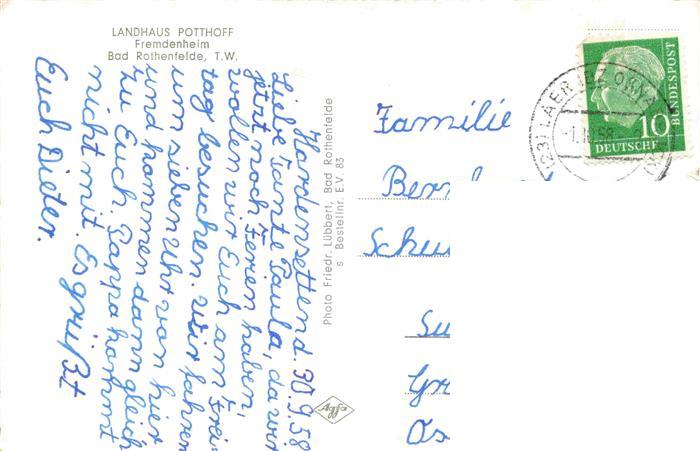 LANDHAUS POTTHOFF
Fremdenheim
Bad Rothenfelde, T.W.
Hardensettend. 30.9.58
Liebe Tante Paula, da wir
jetzt noch Ferien haben,
wollen wir Euch am Frei-
tag besuchen. Wir fahren
um sieben Uhr von hier
und kommen dann gleich
zu Euch. Pappa kommt
nicht mit. Es grüßt
Euch Dieter.
Photo Friedr. Lübbert, Bad Rothenfelde
s Bestellnr. E.V. 83
Agfa
Familie
Ber
Schu
Su
Gr
Os
(23) LAER
-1.10.58
10
DEUTSCHE
BUNDESPOST